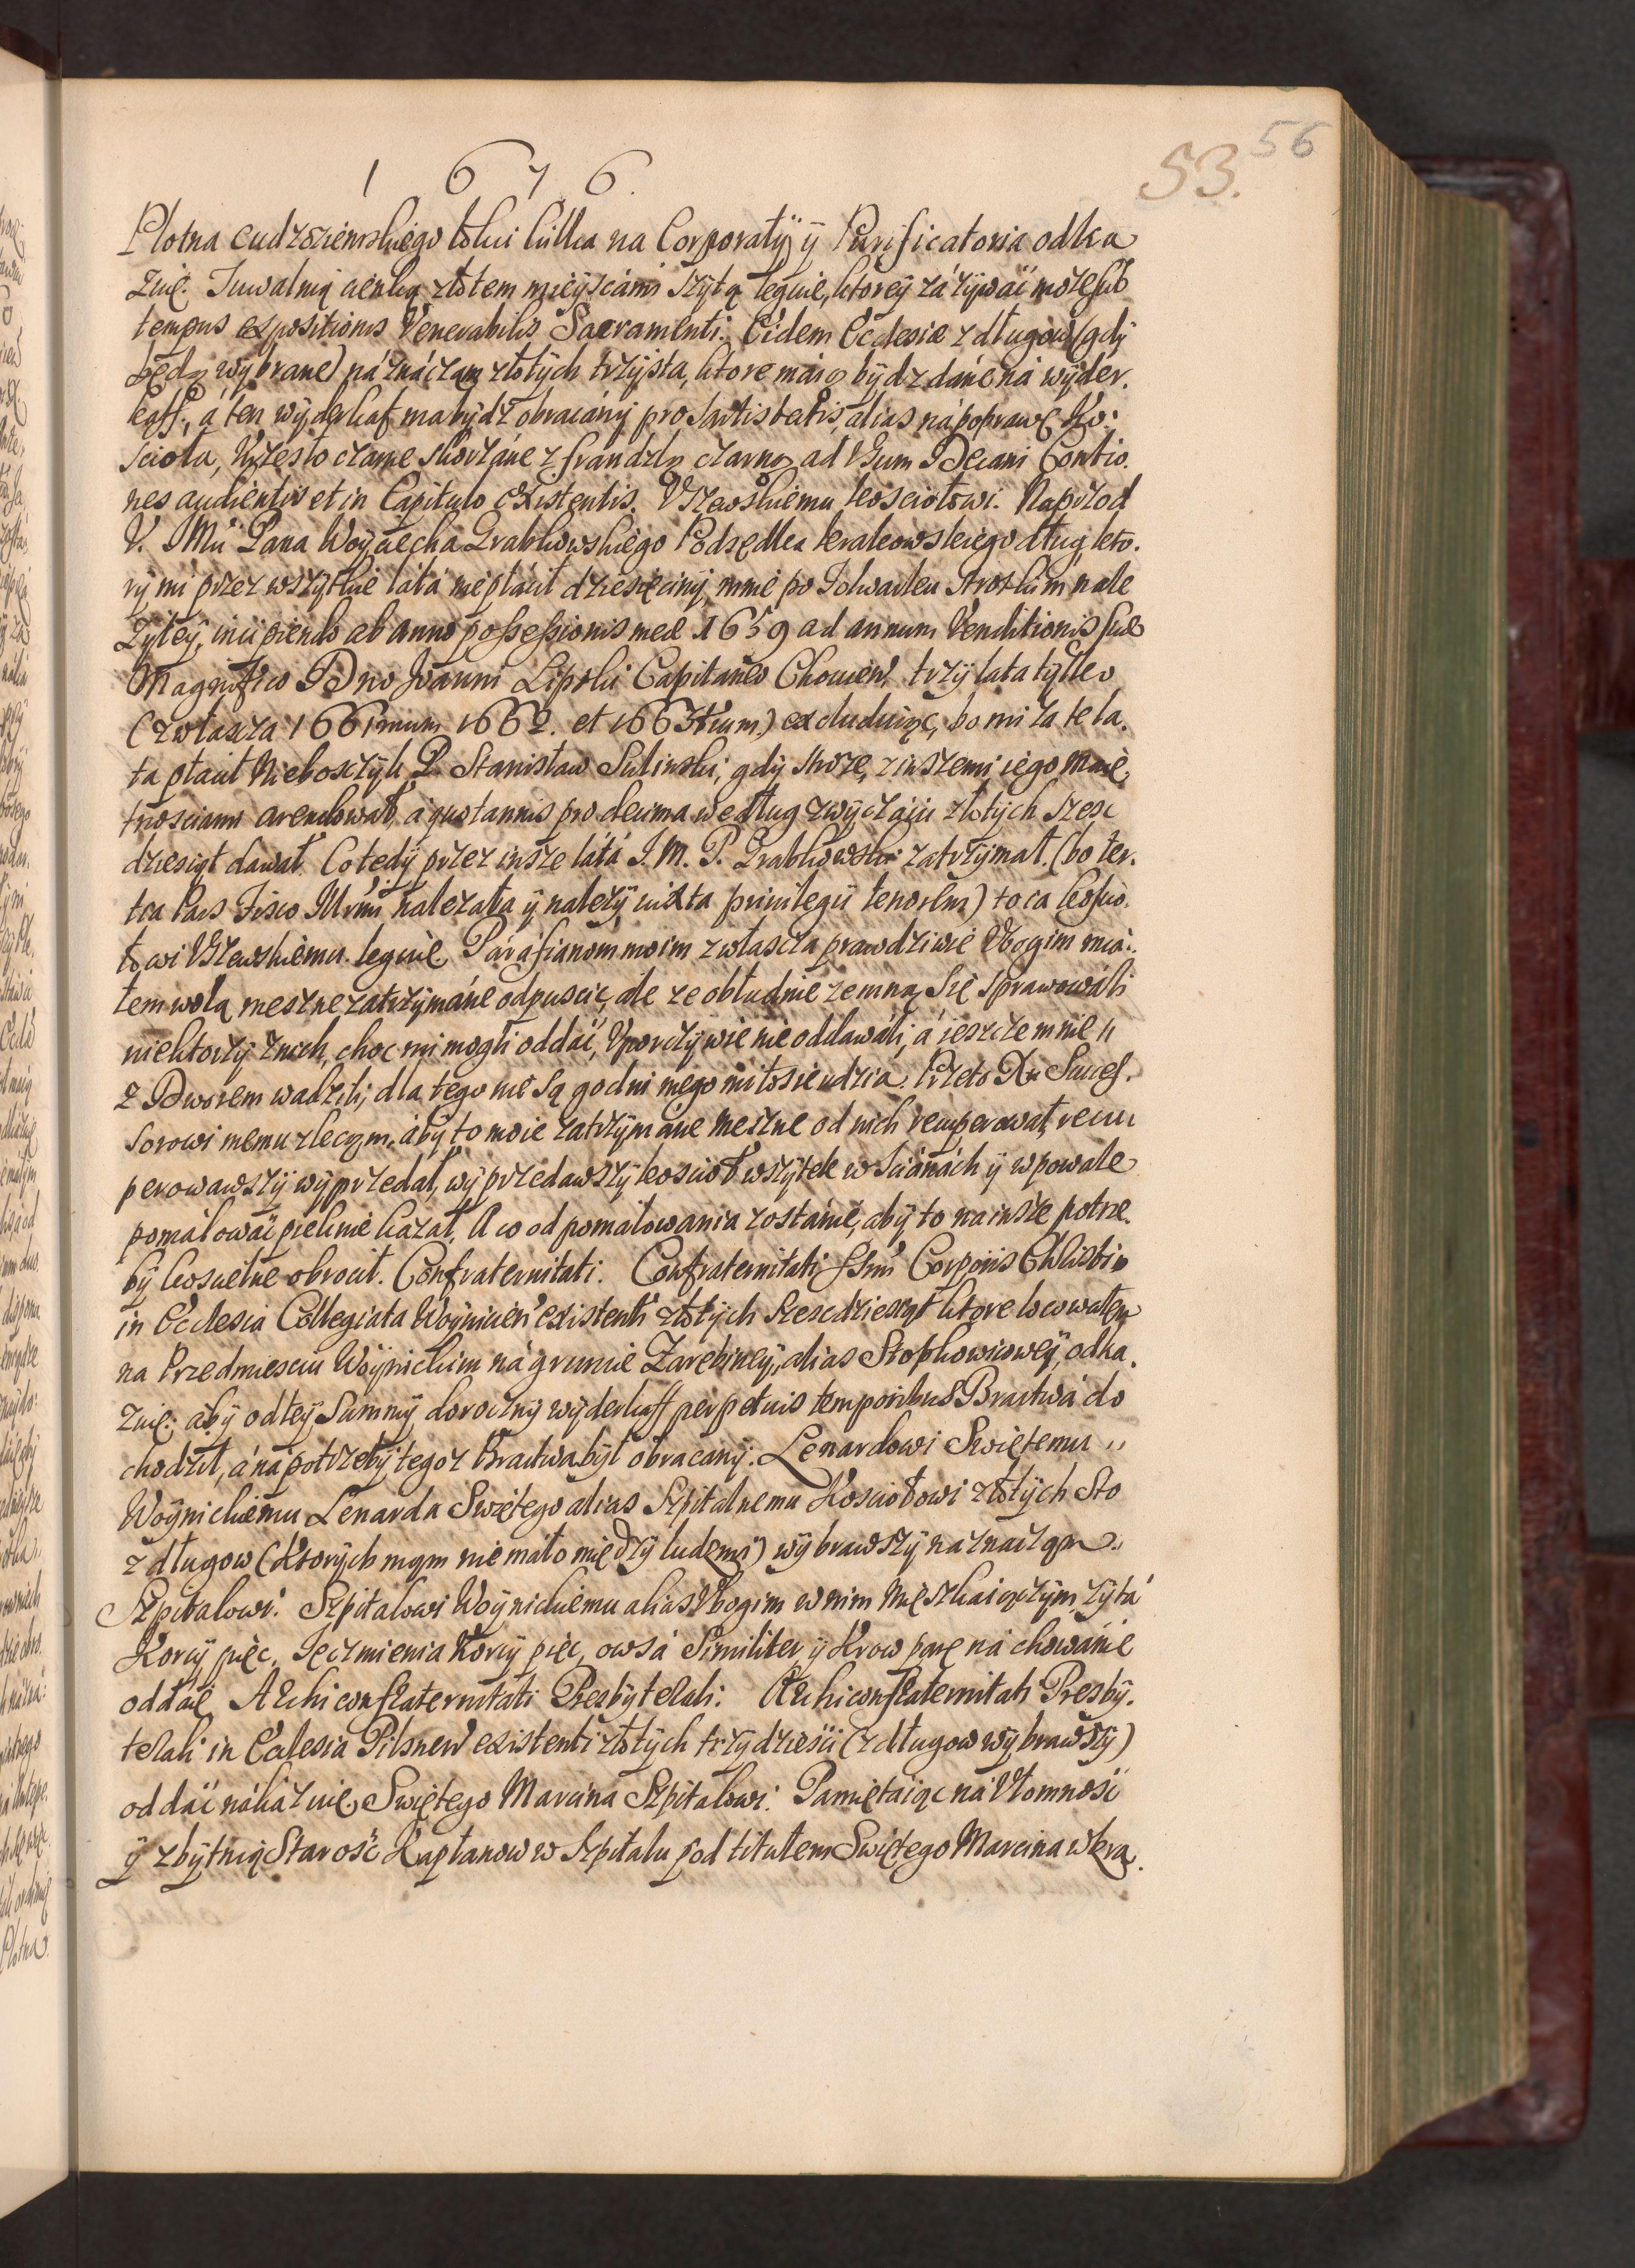 56
53.
1 6 7 6.
Płotna cudzoziemskiego łokci kilka na Corporały ÿ Purificatoria odka
zuię. Tuwalnią cienką złotem mieyscámi szytą leguię, ktorey záżywáć może sub
tempus expositionis Venerabilis Sacramenti. Eidem Ecclesiæ z długow (gdy
będą wybrane) náznáczam złotych trzysta, ktore máią bydz dáne ná wyder.
kaff, á ten wyderkaf ma bydź obracány pro Sartis tectis, alias ná poprawę Ko:
scioła, Krzesło czarne skorzáne z frandzlą czarną ad Vsum Decani Contio.
nes audientis et in Capitulo existentis. Vszewskiemu kosciołowi. Naprzod
V. JMci Pana Woyciecha Grabkowskiego Podsędka krakowskiego dług, kto.
ry mi przez wszytkie látá nie płácił dziesięciny, mnie po Folwarku Stroskim nale
żytey, incipiendo ab anno possessionis meæ 1659 ad annum Venditionis suæ
Magnifico Dno Joanni Lipski Capitaneo Choinen trzy lata tylko
(zwłaszcza 1661mum 1662. et 1663tium) excluduiąc, bo mi za te la.
ta płacił Nieboszczyk P. Stanisław Sulinski, gdy Stroże z inszemi iego Maię,
tnosciami arendował, a quotannis pro decima według zwyczáiu złotych szesc
dziesiąt dawał. Co tedy przez insze látá J. M. P. Grabkowski zatrzymał. (bo ter.
tia Pars Fisco należała ÿ należy iuxta privilegii tenorem) to ca kościo.
łowi Vszewskiemu leguię. Páráfianom moim zwłaszcza prawdziwie Vbogim miá:
łem wolą meszne zatrzymáne odpuscić, ale że obłudnie zemną się sprawowáli
niektorzy znich, choc mi mogli oddáć, Vporczywie nie oddawáli, á ieszcze mnie
z Dworem wadzili; dla tego nie są godni mego miłosierdzia. Przeto Xu Succes.
sorowi memu zlecam, áby to moie zatrzymáne meszne od nich recuperował, recu
perowawszy wyprzedał, wyprzedawszy kościoł wszytek w sciánách ÿ w powale
pomálowáć pieknie kazał. A co od pomalowania zostánie, aby to na insze potrze.
by koscielne obrocił. Confraternitati. Confraternitati SSmi Corporis Christi
in Ecclesia Collegiata Woynicien existenti złotych szescdziesiąt ktore locowałem
na Przedmiesciu Woynickim ná gruncie Zarebiney, alias Stopkowicowey, odka.
zuię: áby od tey Summy doroczny wyderkaff perpetuis temporibus Bractwá do
chodził, á ná potrzeby tegoz Bractwa był obracany. Lenardowi Swiętemu
Woynickiemu Lenarda Swiętego alias Szpitalnemu Kosciołowi złotych sto
z długow (Ktorych mam nie máło między ludzmi) wybrawszy náznaczam
Szpitalowi. Szpitalowi Woynickiemu alias Vbogim w nim Mięszkaiączym, żytá
Korcy pięc, Jęczmienia Korcy pięc, owsá Similiter, ÿ Krow parę ná chowánie
oddaię. Archiconfraternitati Presbyterali. Archiconfraternitati Presby.
terali in Ecclesia Pilsnen existenti złotych trzydzieści (z długow wybrawszy)
oddáć nákázuię. Swiętego Marcina Szpitalowi. Pamiętáiąc ná Vłomność
ÿ zbytnią Starość Kapłanow w Szpitalu pod titułem Swiętego Marcina w Kra.